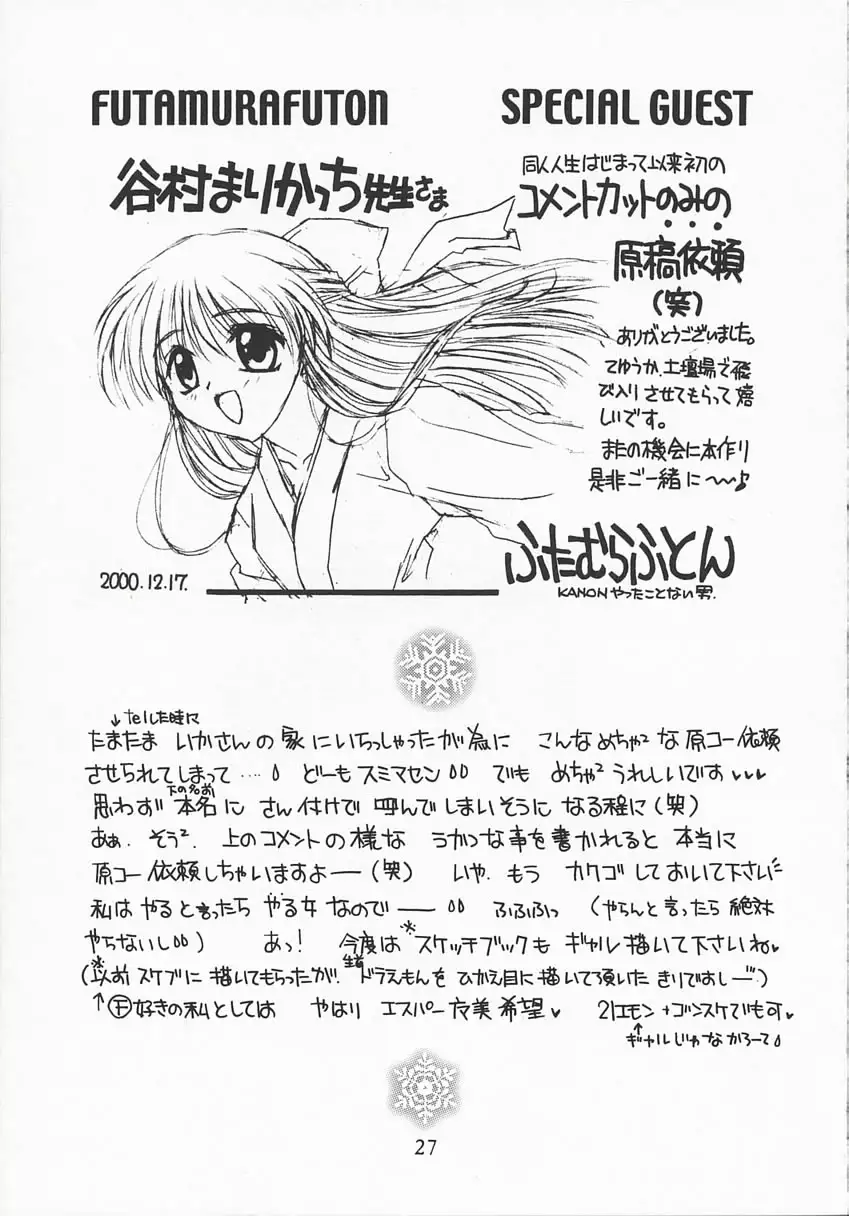 FUTAMURAFUTON
SPECIAL GUEST
谷村まりかっち先生さま
同人人生はじまって以来初の
コメントカットのみの
原稿依頼
(笑)
ありがとうございました。
てゆうか、土壇場で飛
び入りさせてもらって嬉
しいです。
またの機会に本作り
是非ご一緒に〜〜♪
ふたむらふとん
KANONやったことない男.
2000.12.17.
↓telした時に
たまたま いかさんの家にいらっしゃったが為に こんなめちゃ²な原コー依頼
させられてしまって‥‥ どーもスミマセン でも めちゃ²うれしいです♥♥♥
下の名前
思わず 本名に さん付けで 呼んでしまいそうに なる程に(笑)
あぁ、そう²、上のコメントの様な うかつな事を書かれると 本当に
原コー依頼しちゃいますよ──(笑) いや、もう カクゴしておいて下さい
私は やると言ったら やる女なので── ふふふっ (やらんと言ったら 絶対
やらないし) あっ! 今度は *スケッチブックも ギャル描いて下さいね♥
(*以前 スケブに 描いてもらったが、生首ドラえもんを ひかえ目に描いて頂いた きりですし─")
↑Ⓕ好きの私としては やはり エスパー魔美希望♥ 21エモン+ゴンスケでも可♥
↑ギャルじゃなかろーて
27